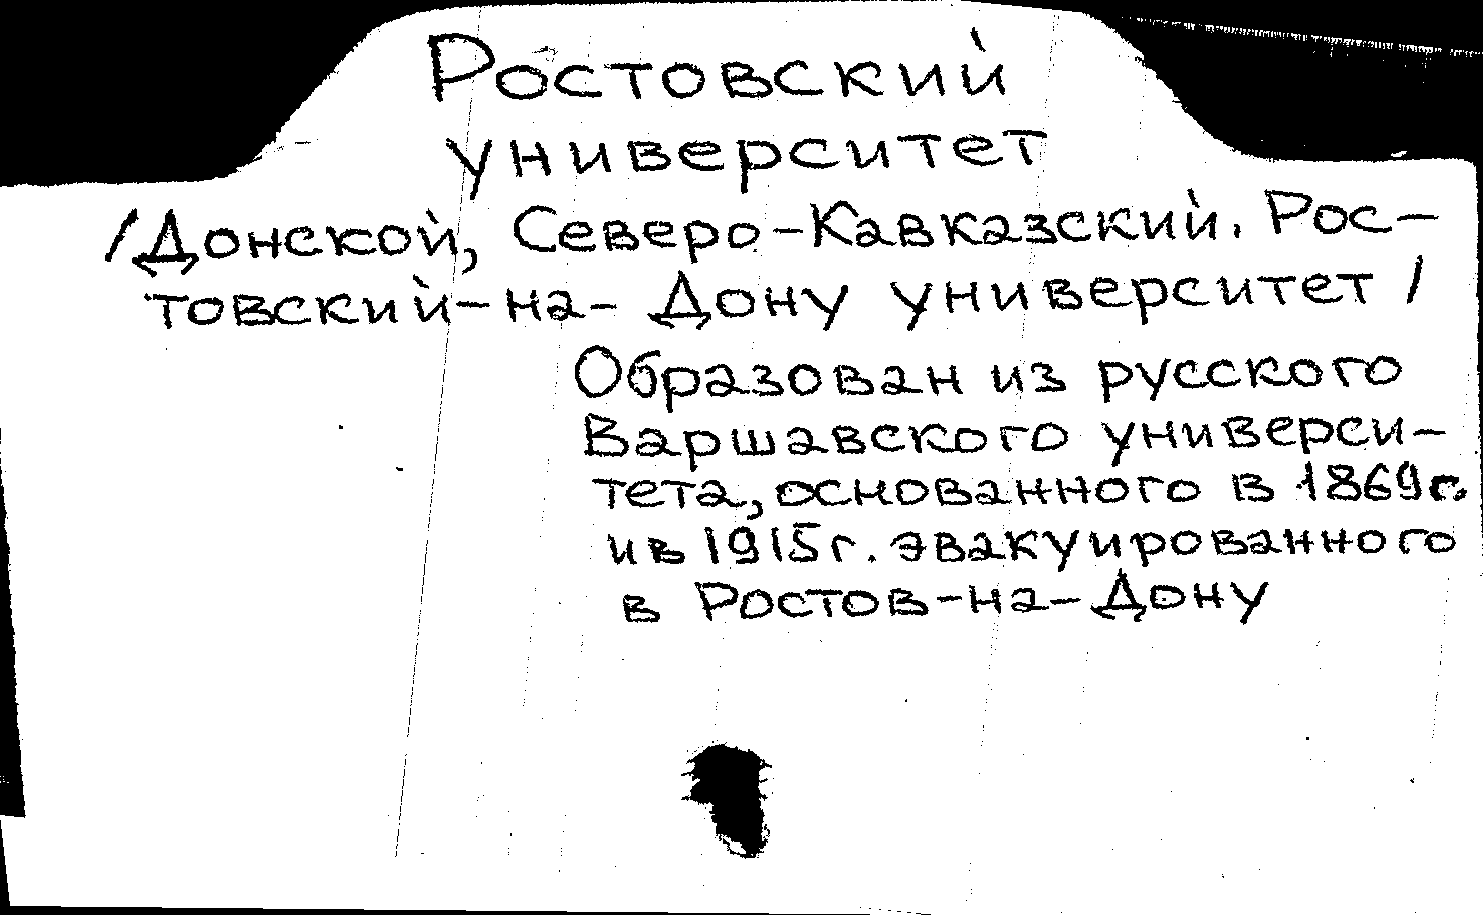 Ростовский
университет
/Донской, Северо-Кавказский. Рос-
товский-на-Дону университет/
Образован из русского
Варшавского универси-
тета, основанного в 1869г.
и в 1915г. эвакуированного
в Ростов-на-Дону